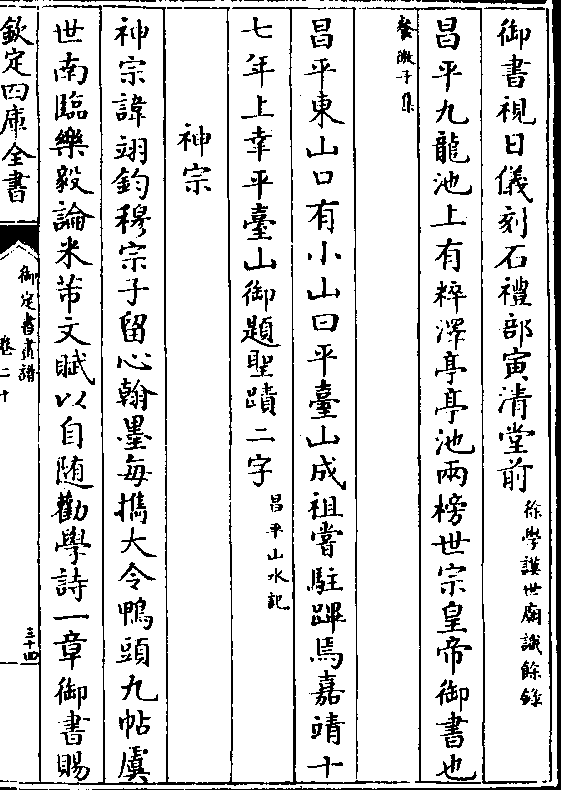 御書視日儀刻石禮部寅清堂前徐學謨世廟識餘錄
昌平九龍池上有粹澤亭亭池兩榜世宗皇帝御書也
餐微子集
昌平東山口有小山曰平臺山成祖嘗駐蹕焉嘉靖十
七年上幸平臺山御題聖蹟二字昌平山水記
神宗
神宗諱翊鈞穆宗子留心翰墨每攜大令鴨頭九帖虞
世南臨樂毅論米芾文賦以自随勸學詩一章御書賜
欽定四庫全書
御定書畫譜
卷二十
三十四